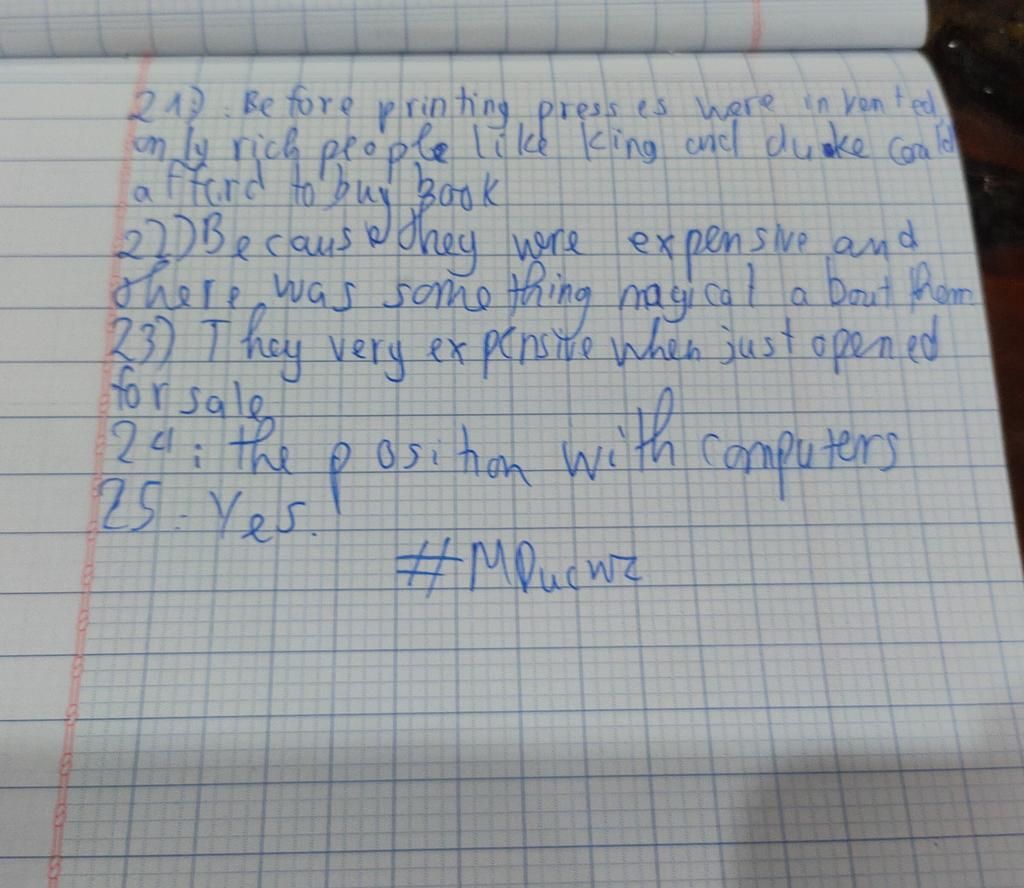 21). Before printing presses were invented,
only rich people like King and duke could
afford to buy Book
22) Because they were expensive and
there was something magical about them
23) They very expensive when just opened
for sale
24: the position with computers
25. Yes.
#MDucwz